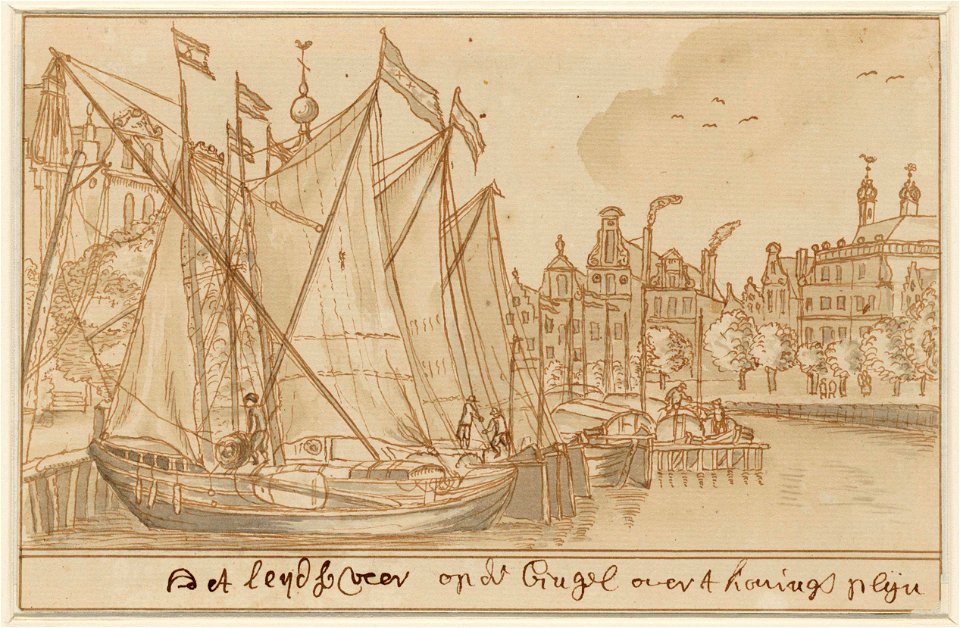 Het leydse veer op de Cingel over t konings plyn